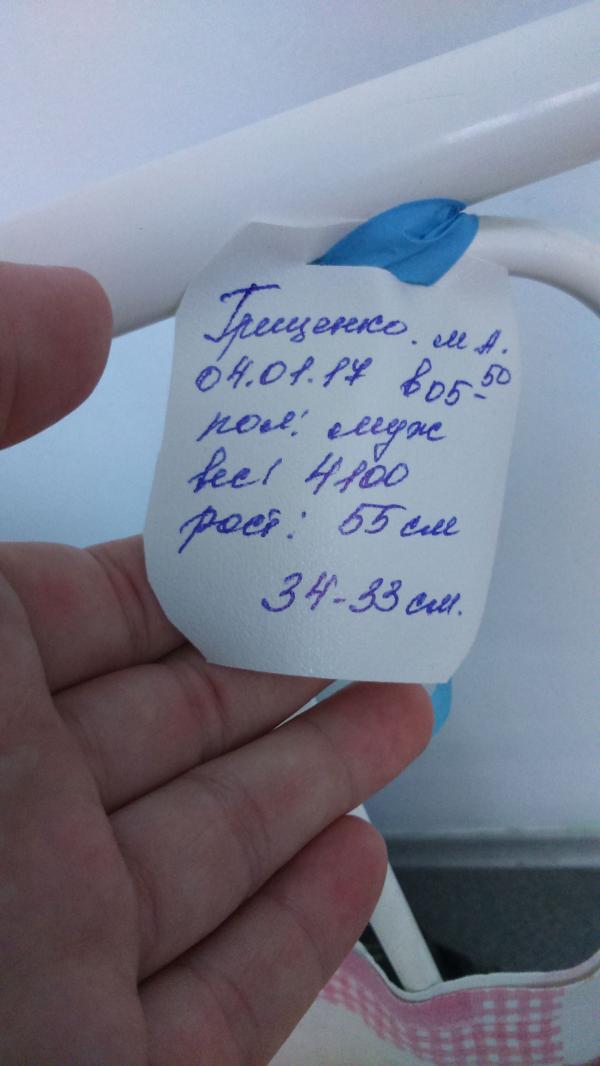 Грищенко. м А.
04.01.17 в 05-50
пол: муж
вес: 4100
рост: 55 см
34-33 см.